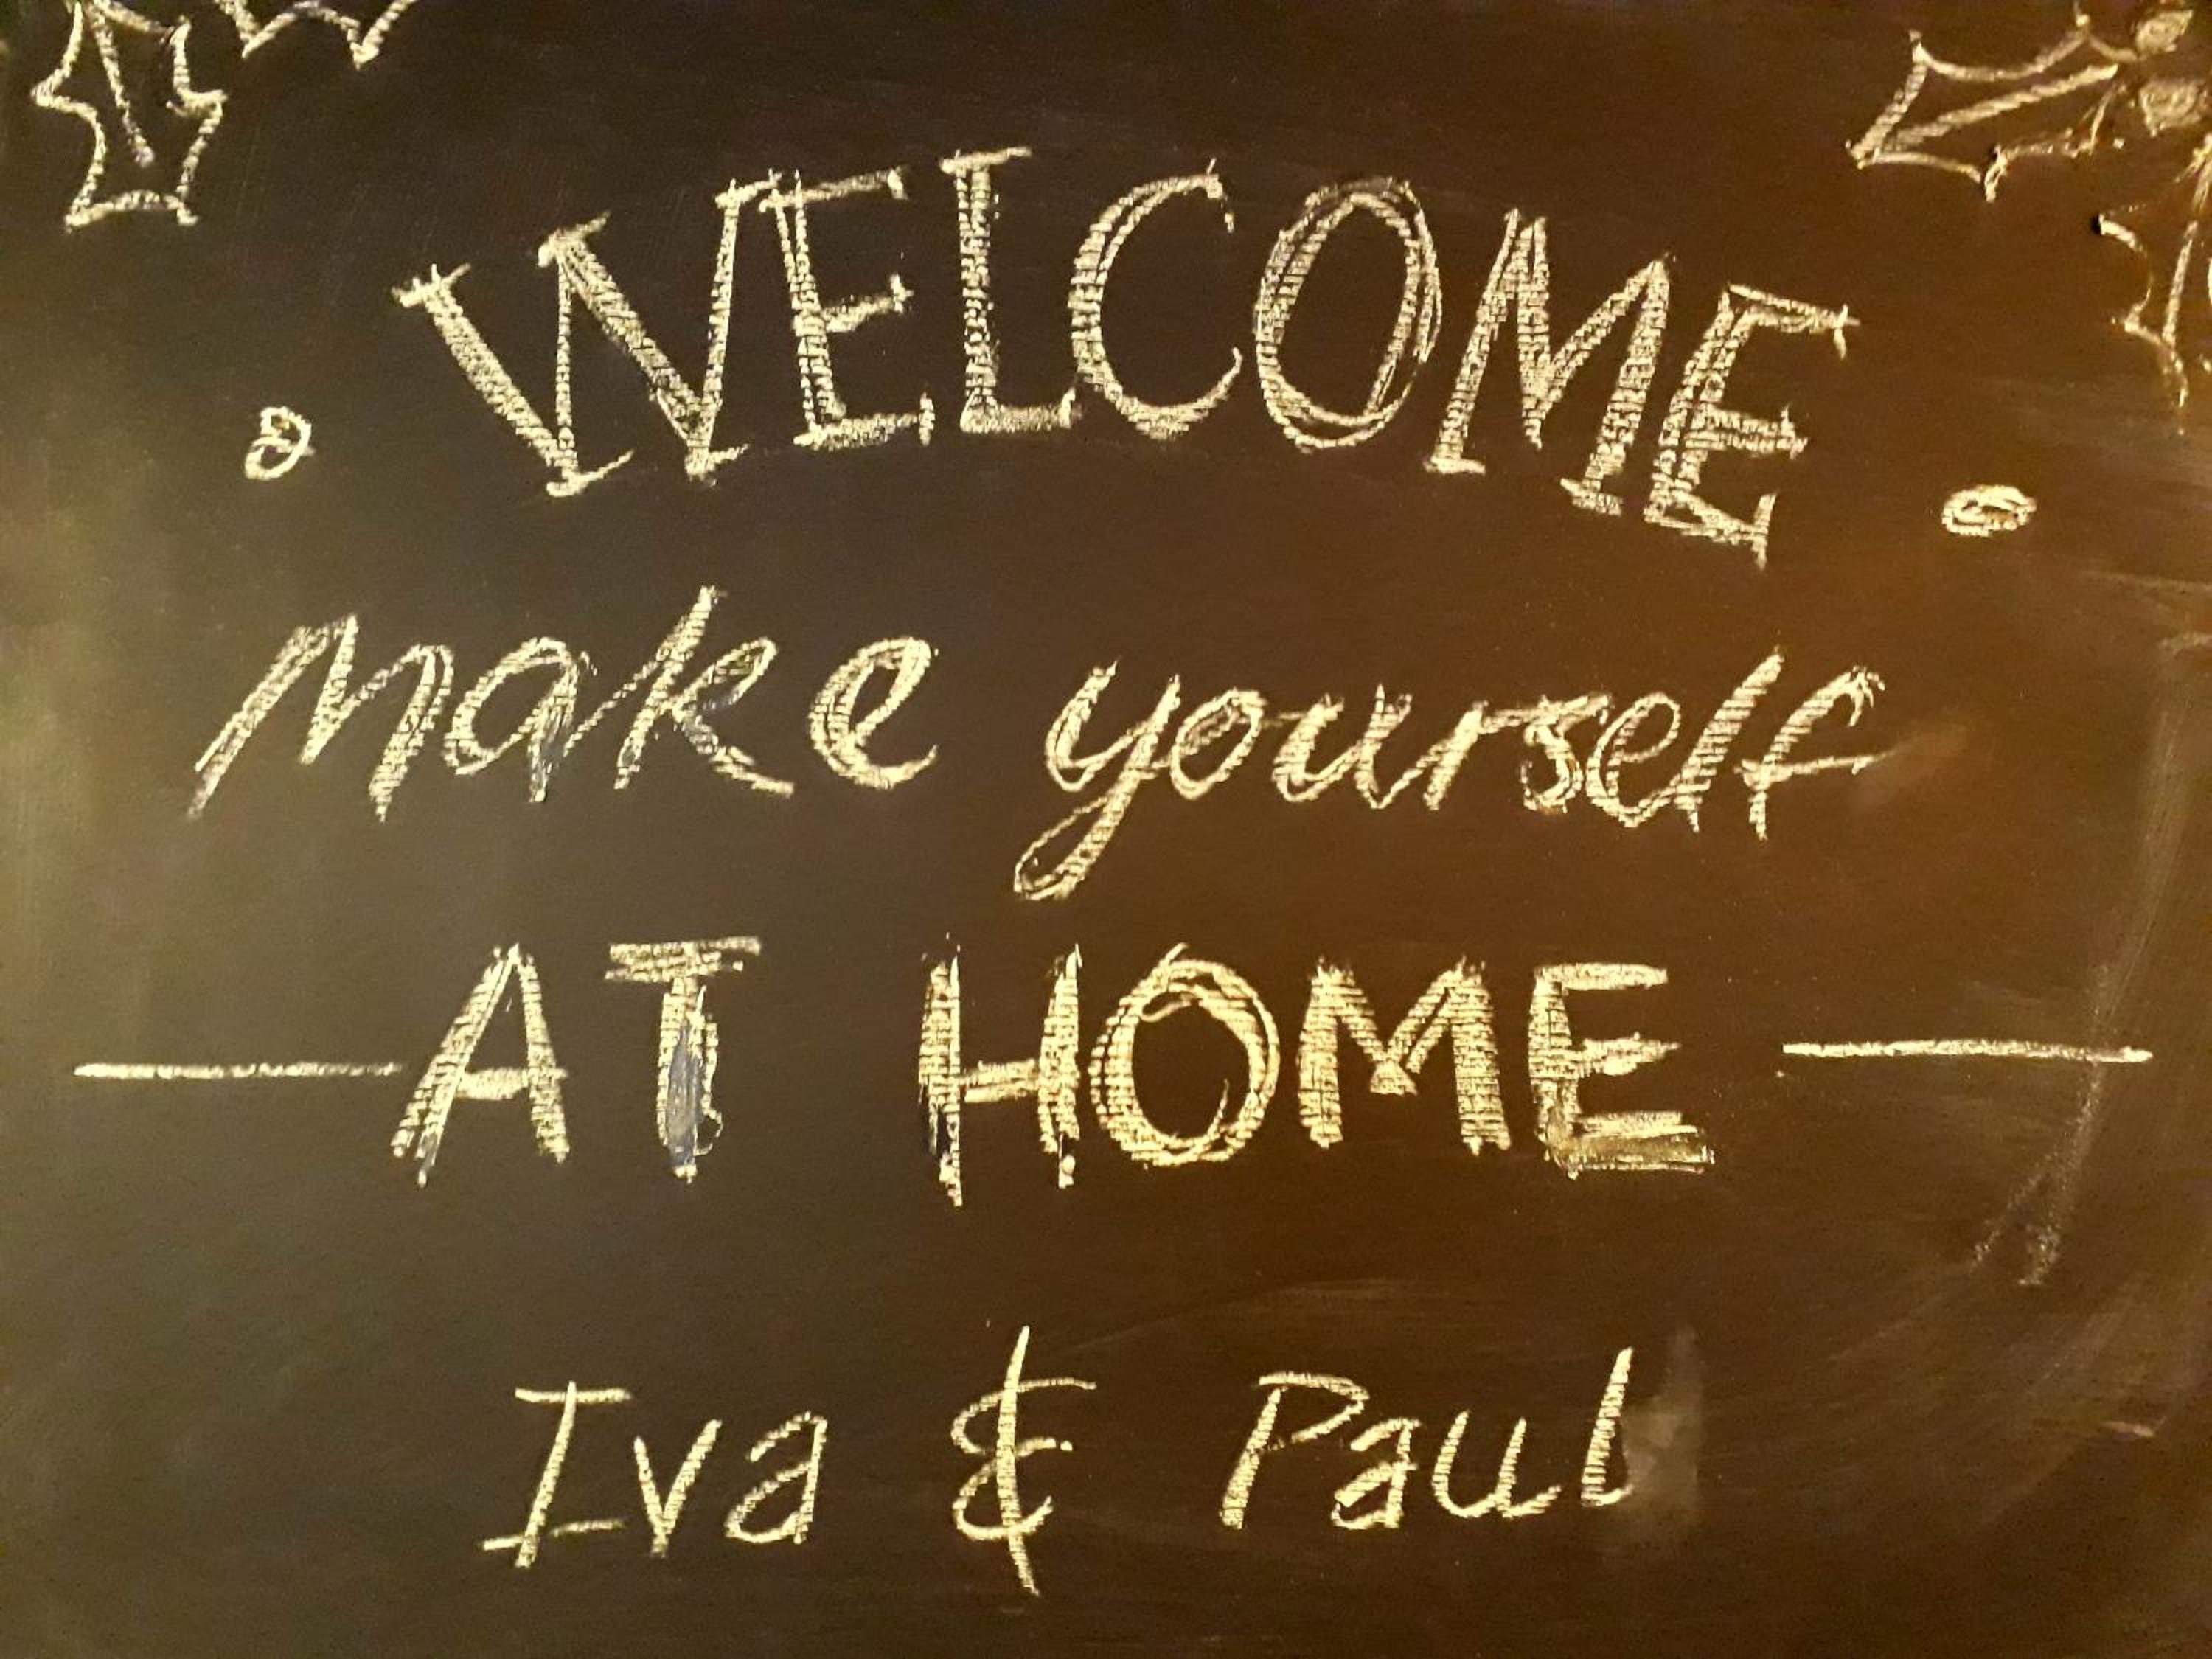 WELCOME
make yourself
AT HOME
Iva & Paul